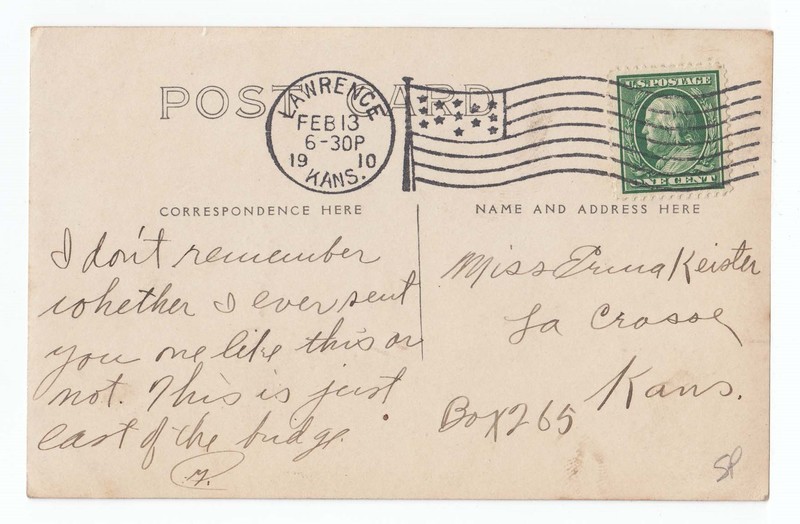 POST CARD
LAWRENCE
FEB 13
6-30P
19 10
KANS.
U.S. POSTAGE
ONE CENT
CORRESPONDENCE HERE
NAME AND ADDRESS HERE
I don't remember
whether I ever sent
you one like this or
not. This is just
east of the bridge.
Miss Erma Keister
La Crosse
Kans.
Box 265
SP